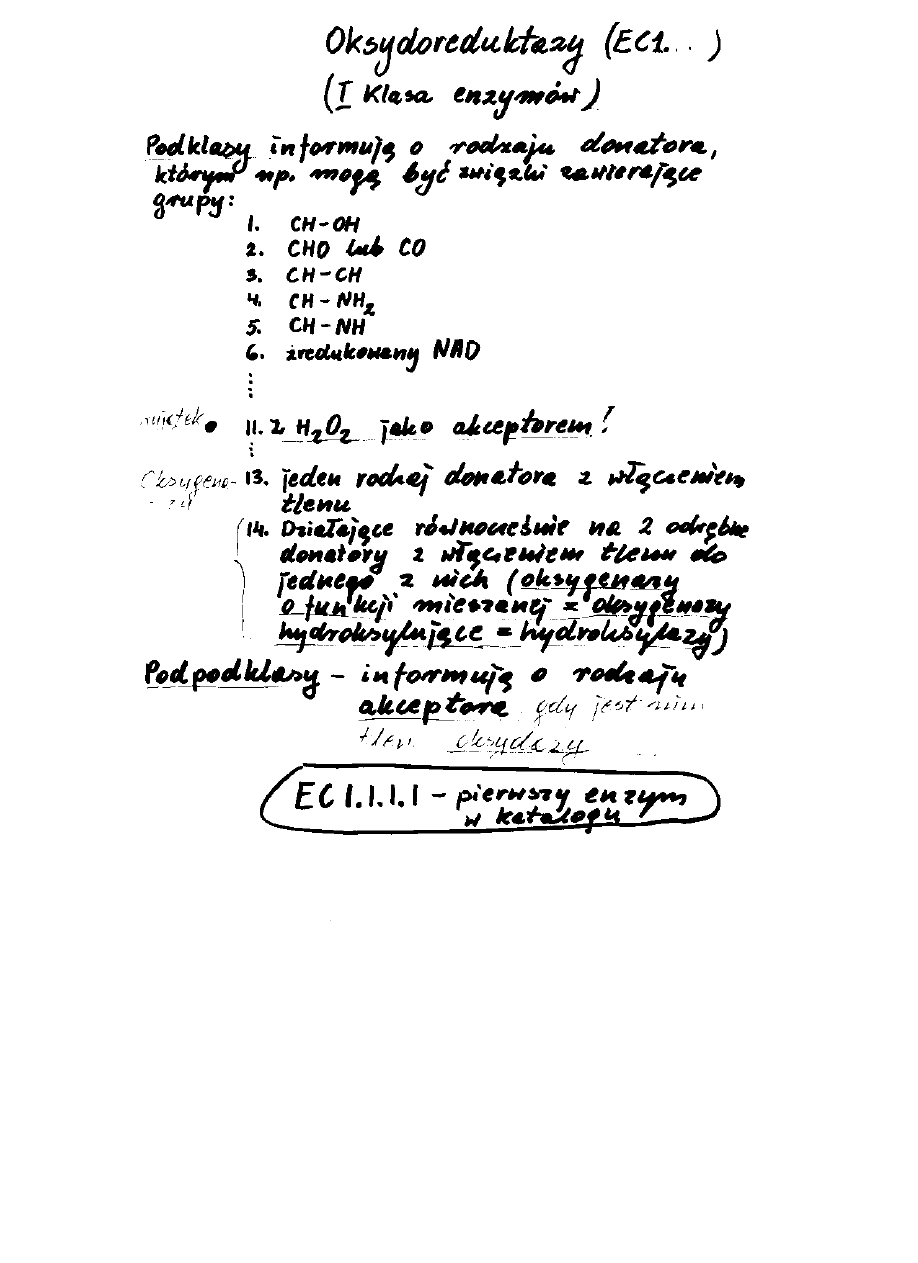 Oksydoreduktazy (EC1...)
(I Klasa enzymów)
Podklasy informują o rodzaju donatora,
którym np. mogą być związki zawierające
grupy:
1. CH-OH
2. CHO lub CO
3. CH-CH
4. CH-NH₂
5. CH-NH
6. zredukowany NAD
⋮
11. z H₂O₂ jako akceptorem!
⋮
Oksygena- 13. jeden rodzaj donatora z włączeniem
-zy tlenu
14. Działające równocześnie na 2 odrębne
donatory z włączeniem tlenu do
jednego z nich (oksygenazy
o funkcji mieszanej = oksygenazy
hydroksylujące = hydroksylazy)
Podpodklasy - informują o rodzaju
akceptora gdy jest nim
tlen oksydazy
EC 1.1.1.1 - pierwszy enzym
w katalogu